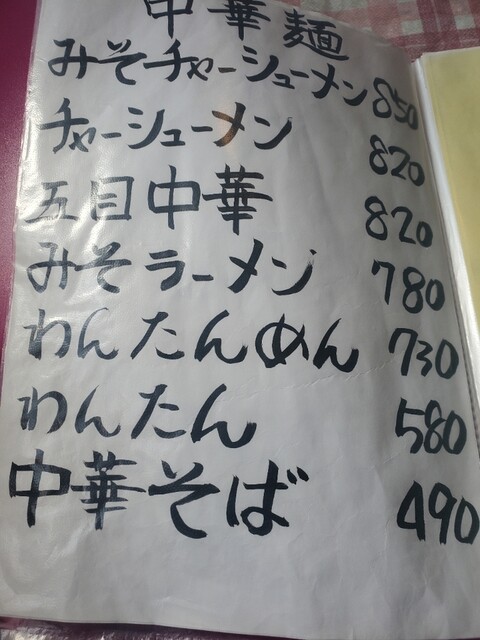 中華麺
みそチャーシューメン 850
チャーシューメン 820
五目中華 820
みそラーメン 780
わんたんめん 730
わんたん 580
中華そば 490